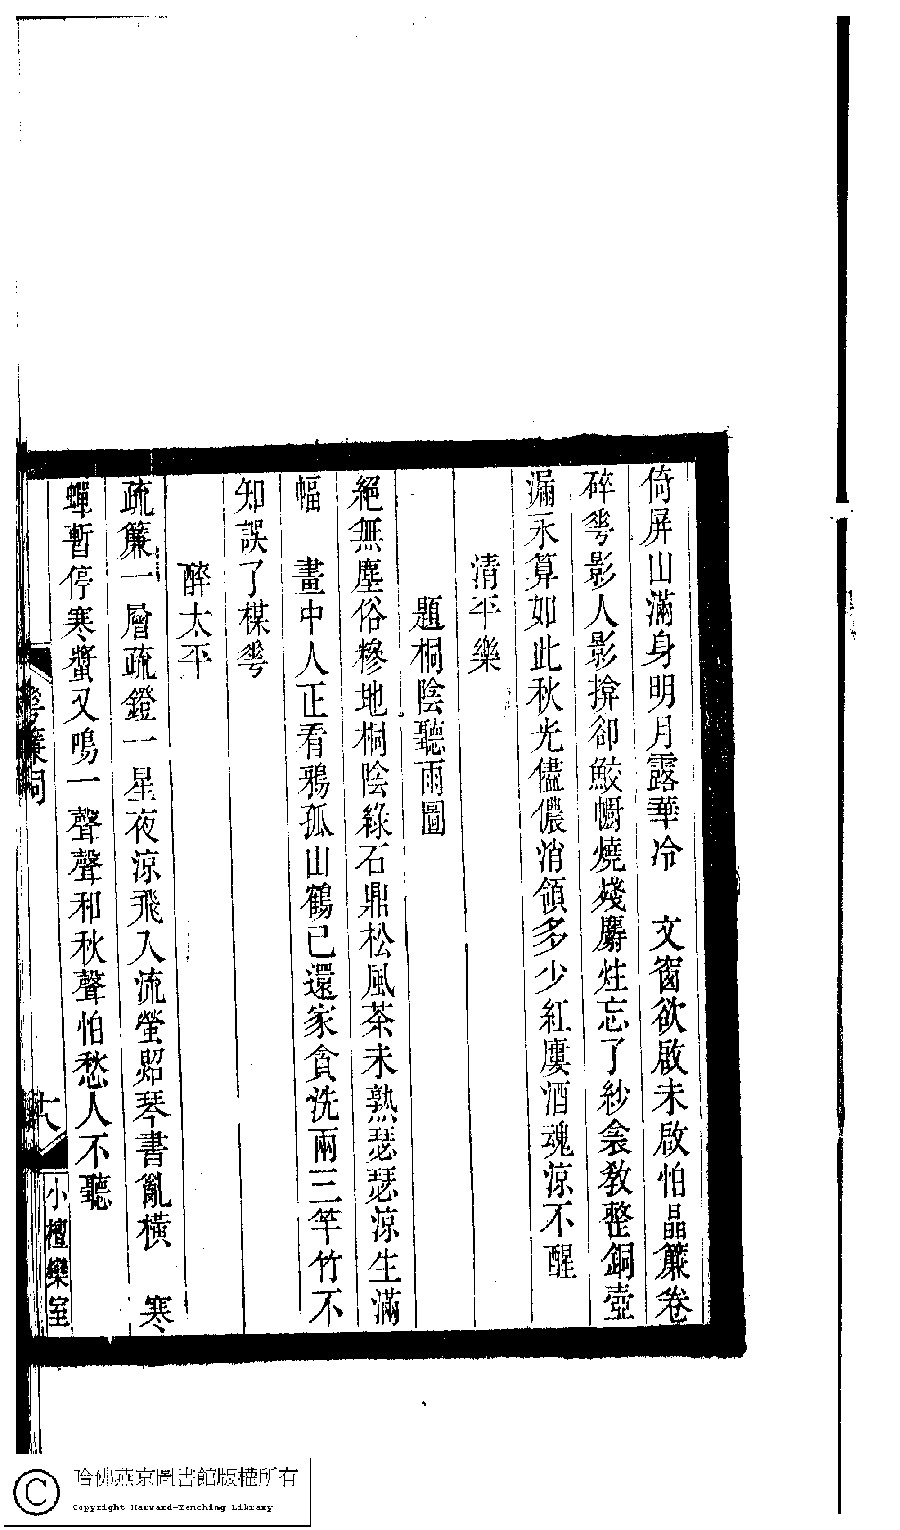 倚屏山滿身明月露華冷　文窗欲啟未啟怕晶簾卷
碎蕚影人影揜卻鮫㡡燒殘麝炷忘了紗衾教整銅壺
漏永算如此秋光儘儂消領多少紅廔酒魂涼不醒
清平樂
題桐陰聽雨圖
絕無塵俗糝地桐陰綠石鼎松風茶未熟瑟瑟涼生滿
幅　畫中人正看鴉孤山鶴已還家貪洗兩三竿竹不
知誤了棋蕚
醉太平
疏簾一層疏鐙一星夜涼飛入流螢照琴書亂橫　寒
蟬暫停寒螿又鳴一聲聲和秋聲怕愁人不聽
簾詞
六
小檀欒室
哈佛燕京圖書館版權所有
Copyright Harvard-Yenching Library